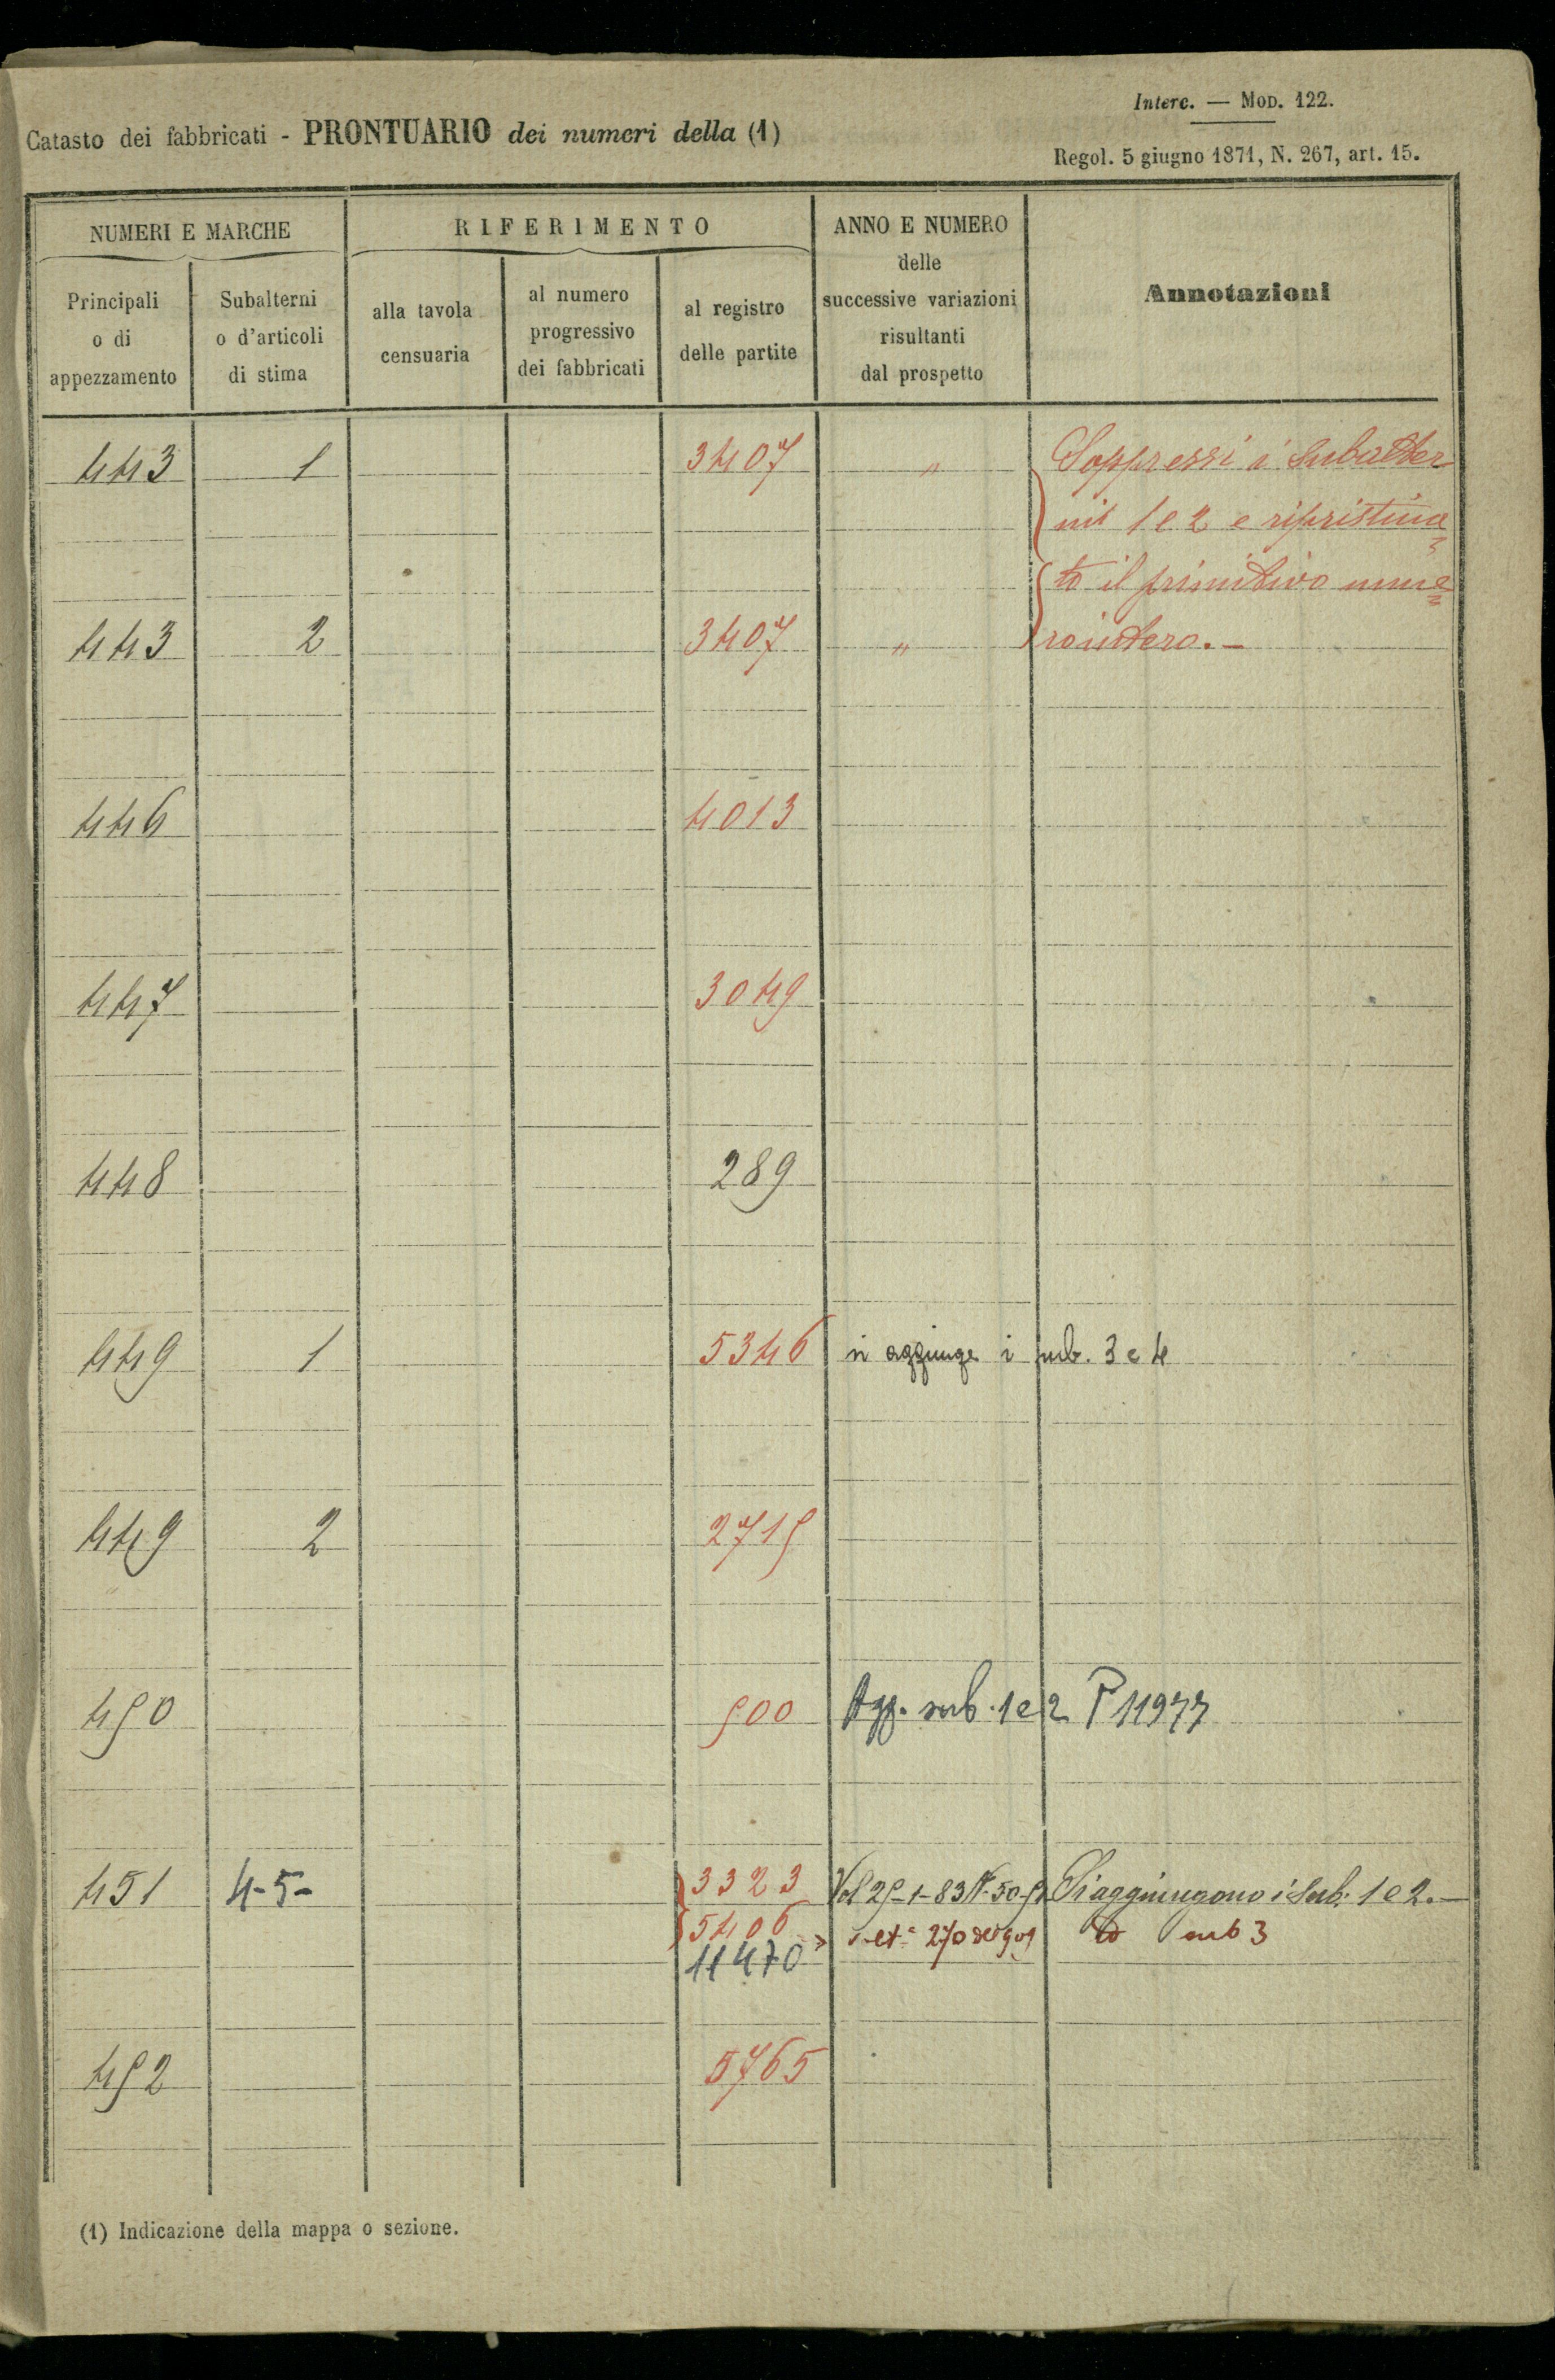 Interc. — Mod. 122.
Catasto dei fabbricati - PRONTUARIO dei numeri della (1)
Regol. 5 giugno 1871, N. 267, art. 15.
NUMERI E MARCHE
RIFERIMENTO
ANNO E NUMERO
delle
successive variazioni
risultanti
dal prospetto
Annotazioni
Principali
o di
appezzamento
Subalterni
o d'articoli
di stima
alla tavola
censuaria
al numero
progressivo
dei fabbricati
al registro
delle partite
443 1 3407 " Soppressi i subalter
ni 1 e 2 e ripristina=
to il primitivo nume=
443 2 3407 " ro intero. -
446 4013
447 3049
448 289
449 1 5346 si aggiunge i sub. 3 e 4
449 2 2715
450 500 Agg. sub. 1 e 2 P 11977
451 4-5- 3323 Vol 25-1-83 N. 50 Si aggiungono i Sub. 1 e 2. -
5406 270 sub 3
11470
452 5765
(1) Indicazione della mappa o sezione.